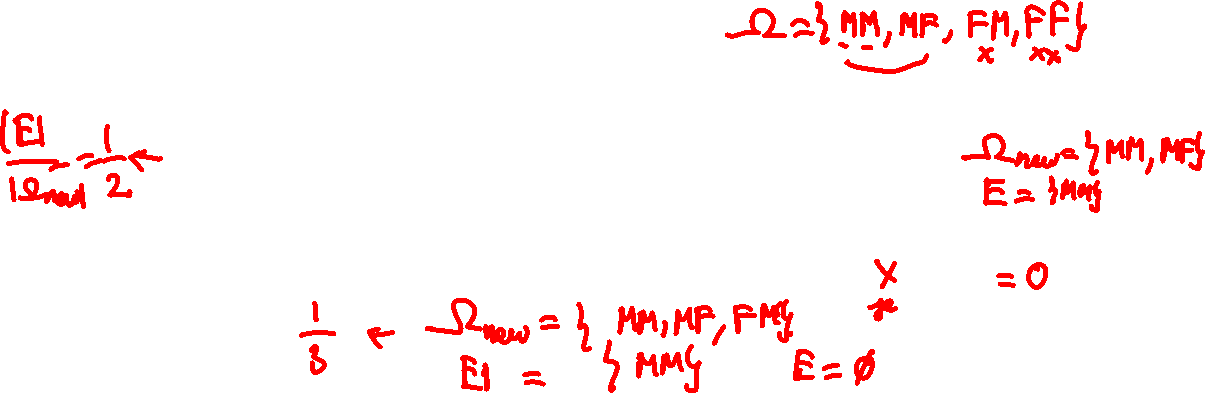 Ω = { MM, MF, FM, FF}
x xx
|E| / |Ωnew| = 1/2 ←
Ωnew = { MM, MF}
E = {MM}
x = 0
1/3 ← Ωnew = { MM, MF, FM}
E1 = { MM} E = ∅